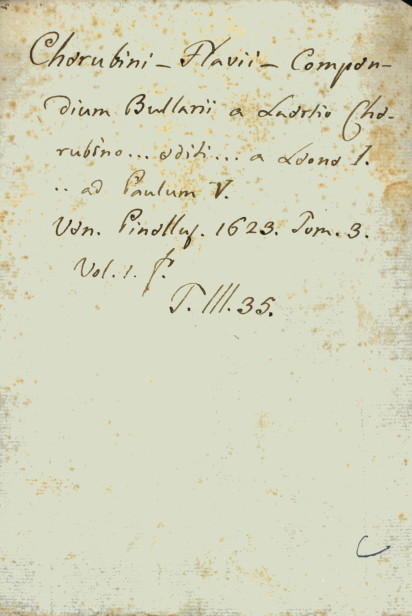 Cherubini - Flavii - Compen-
dium Bullarii a Laertio Che-
rubino... editi... a Leone I.
.. ad Paulum V.
Ven. Pinellus. 1623. Tom. 3.
Vol. 1. f.
T. III. 35.